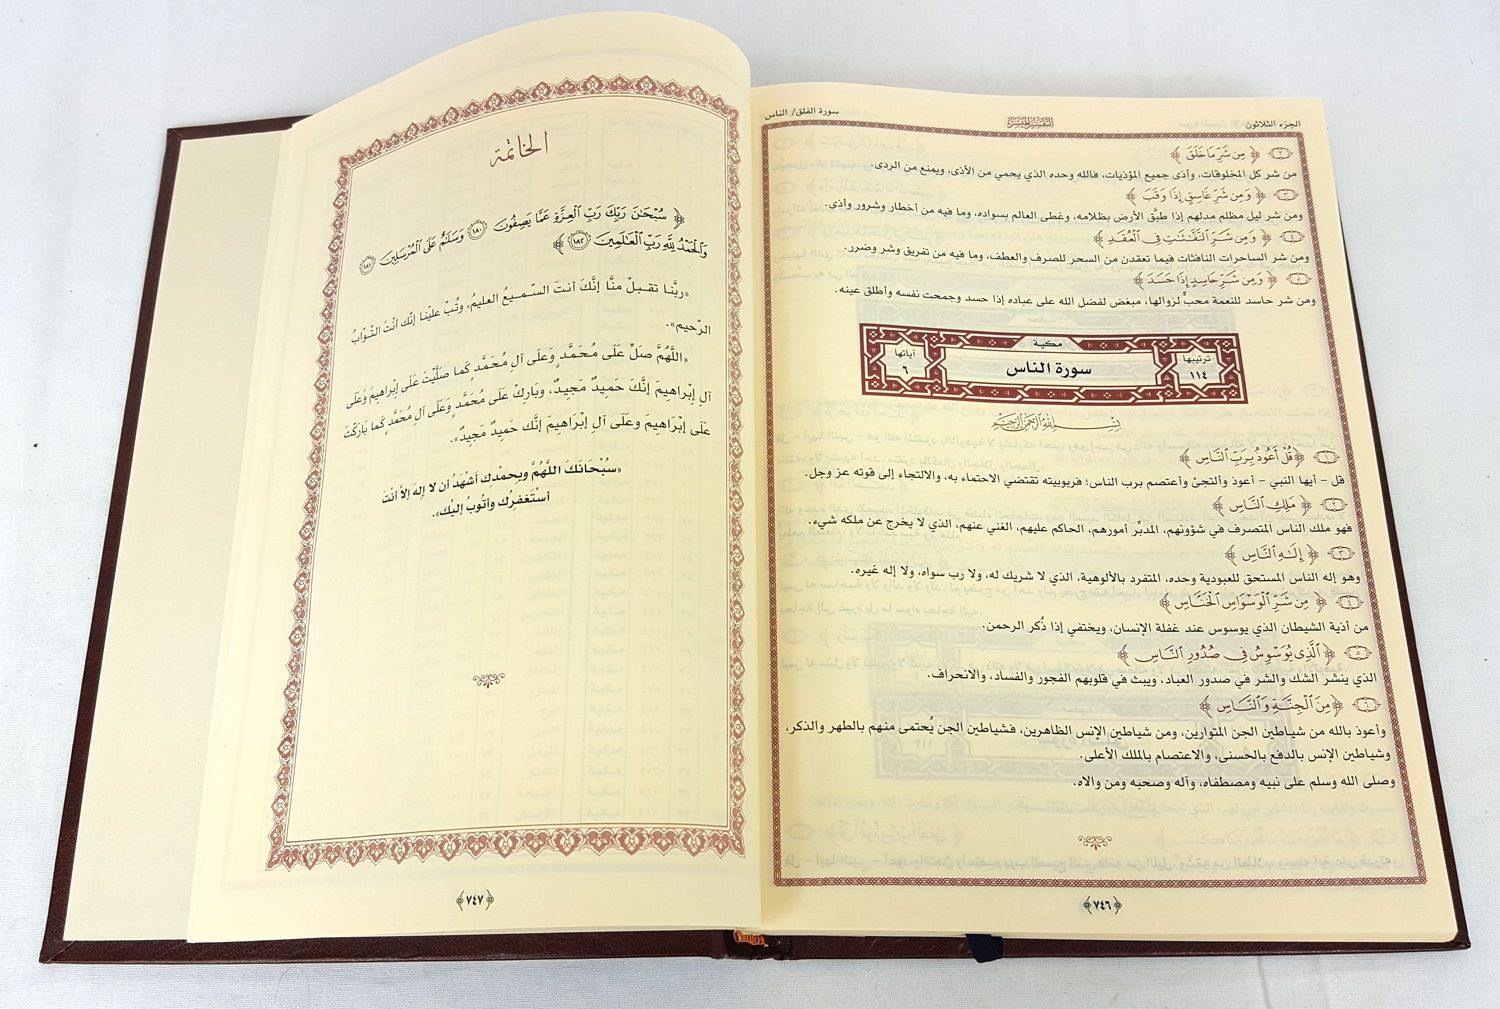 الجزء الثلاثون
التفسير الميسر
سورة الفلق/ الناس
٢ ﴿ مِن شَرِّ مَا خَلَقَ ﴾
من شر كل المخلوقات، وأذى جميع المؤذيات، فالله وحده الذي يحمي من الأذى، ويمنع من الردى.
٣ ﴿ وَمِن شَرِّ غَاسِقٍ إِذَا وَقَبَ ﴾
ومن شر ليل مظلم مدلهم إذا طبَّق الأرض بظلامه، وغطى العالم بسواده، وما فيه من أخطار وشرور وأذى.
٤ ﴿ وَمِن شَرِّ ٱلنَّفَّٰثَٰتِ فِي ٱلْعُقَدِ ﴾
ومن شر الساحرات النافثات فيما تعقدن من السحر للصرف والعطف، وما فيه من تفريق وشر وضرر.
٥ ﴿ وَمِن شَرِّ حَاسِدٍ إِذَا حَسَدَ ﴾
ومن شر حاسد للنعمة محبٍّ لزوالها، مبغض لفضل الله على عباده إذا حسد وجمحت نفسه وأطلق عينه.
مكية
ترتيبها ١١٤
سورة الناس
آياتها ٦
بِسْمِ ٱللَّهِ ٱلرَّحْمَٰنِ ٱلرَّحِيمِ
١ ﴿ قُلْ أَعُوذُ بِرَبِّ ٱلنَّاسِ ﴾
قل - أيها النبي - أعوذ وألتجئ وأعتصم برب الناس؛ فربوبيته تقتضي الاحتماء به، والالتجاء إلى قوته عز وجل.
٢ ﴿ مَلِكِ ٱلنَّاسِ ﴾
فهو ملك الناس المتصرف في شؤونهم، المدبِّر أمورهم، الحاكم عليهم، الغني عنهم، الذي لا يخرج عن ملكه شيء.
٣ ﴿ إِلَٰهِ ٱلنَّاسِ ﴾
وهو إله الناس المستحق للعبودية وحده، المتفرد بالألوهية، الذي لا شريك له، ولا رب سواه، ولا إله غيره.
٤ ﴿ مِن شَرِّ ٱلْوَسْوَاسِ ٱلْخَنَّاسِ ﴾
من أذية الشيطان الذي يوسوس عند غفلة الإنسان، ويختفي إذا ذُكر الرحمن.
٥ ﴿ ٱلَّذِي يُوَسْوِسُ فِي صُدُورِ ٱلنَّاسِ ﴾
الذي ينشر الشك والشر في صدور العباد، ويبث في قلوبهم الفجور والفساد، والانحراف.
٦ ﴿ مِنَ ٱلْجِنَّةِ وَٱلنَّاسِ ﴾
وأعوذ بالله من شياطين الجن المتوارين، ومن شياطين الإنس الظاهرين، فشياطين الجن يُحتمى منهم بالطهر والذكر،
وشياطين الإنس بالدفع بالحسنى، والاعتصام بالملك الأعلى.
وصلى الله وسلم على نبيه ومصطفاه، وآله وصحبه ومن والاه.
﴿٧٤٦﴾
الخاتمة
﴿ سُبْحَٰنَ رَبِّكَ رَبِّ ٱلْعِزَّةِ عَمَّا يَصِفُونَ ١٨٠ وَسَلَٰمٌ عَلَى ٱلْمُرْسَلِينَ ١٨١
وَٱلْحَمْدُ لِلَّهِ رَبِّ ٱلْعَٰلَمِينَ ١٨٢ ﴾
«ربَّنا تقبلْ منَّا إنَّكَ أنتَ السّميعُ العليمُ، وتُبْ علَيْنا إنّكَ أنْتَ التّوّابُ
الرّحيم».
«اللَّهُمَّ صَلِّ عَلَى مُحَمَّدٍ وَعَلَى آلِ مُحَمَّدٍ كَمَا صَلَّيْتَ عَلَى إبْراهِيمَ وَعَلَى
آلِ إبْراهِيمَ إنَّكَ حَمِيدٌ مَجِيدٌ، وَبَارِكْ عَلَى مُحَمَّدٍ وَعَلَى آلِ مُحَمَّدٍ كَمَا بَارَكْتَ
عَلَى إبْرَاهِيمَ وعَلَى آلِ إبْرَاهِيمَ إنَّكَ حَمِيدٌ مَجِيدٌ».
«سُبْحَانَكَ اللَّهُمَّ وبِحمْدِك أشْهَدُ أن لا إلهَ إلاَّ أنْتَ
أسْتَغفِرُك وأتُوبُ إليْك».
﴿٧٤٧﴾